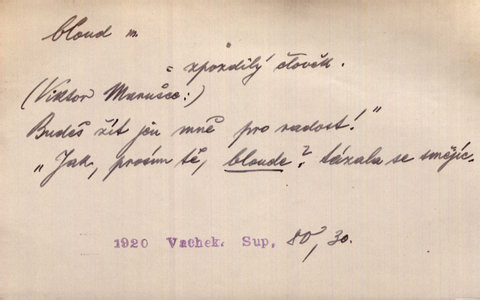 bloud m.
= zpozdilý člověk.
(Viktor Marušce:)
Budeš žít jen mně pro radost!"
„Jak, prosím tě, bloude?" tázala se smějíc.
1920 Vachek. Sup, 80, 30.